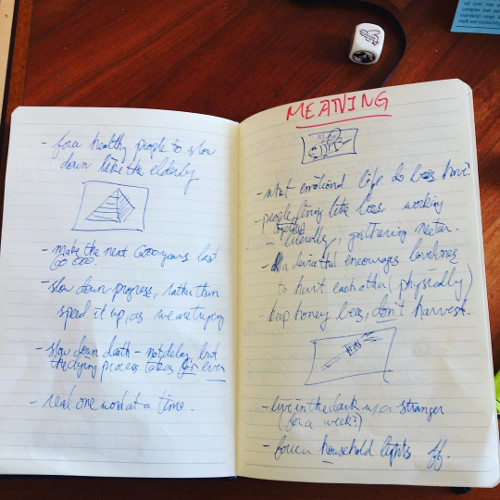 - force healthy people to slow
down like the elderly
- make the next 6000 years last
60 000.
- slow down progress, rather than
speed it up, as we are trying
- slow down death - not delay, but
the dying process takes for ever
- read one word at a time.
MEANING
- what emotional life do bees have?
- people living like bees working
together
- literally, gathering nectar.
- a bird that encourages loved ones
to hurt each other (physically)
- keep honey bees, don't harvest.
- live in the dark w/ a stranger
(for a week?)
- force household lights off.